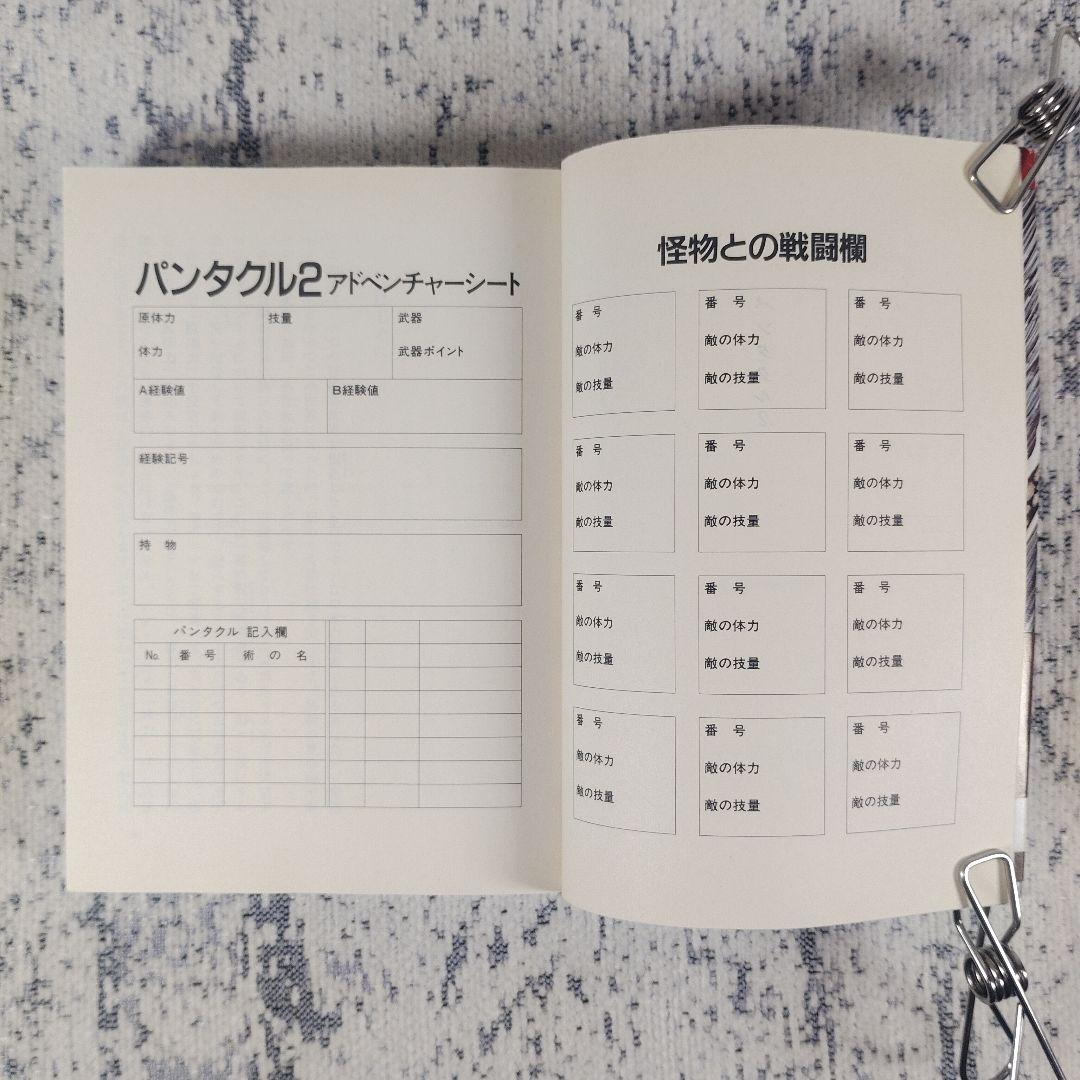 パンタクル2アドベンチャーシート
原体力 技量 武器
体力 武器ポイント
A経験値 B経験値
経験記号
持 物
パンタクル 記入欄
No. 番 号 術 の 名
怪物との戦闘欄
番 号 番 号 番 号
敵の体力 敵の体力 敵の体力
敵の技量 敵の技量 敵の技量
番 号 番 号 番 号
敵の体力 敵の体力 敵の体力
敵の技量 敵の技量 敵の技量
番 号 番 号 番 号
敵の体力 敵の体力 敵の体力
敵の技量 敵の技量 敵の技量
番 号 番 号 番 号
敵の体力 敵の体力 敵の体力
敵の技量 敵の技量 敵の技量